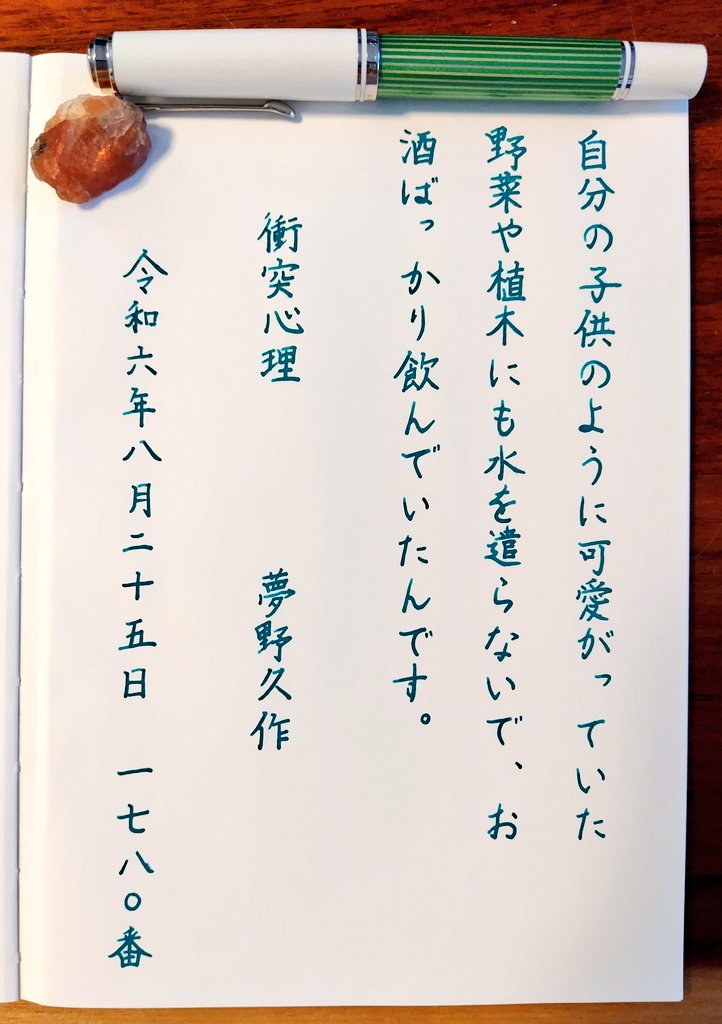 自分の子供のように可愛がっていた
野菜や植木にも水を遣らないで、お
酒ばっかり飲んでいたんです。
衝突心理　夢野久作
令和六年八月二十五日　一七八〇番